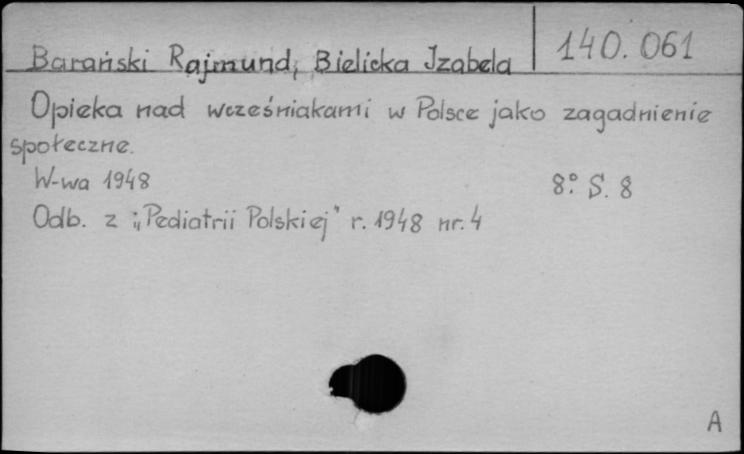 Barański Rajmund, Bielicka Izabela
140.061
Opieka nad wcześniakami w Polsce jako zagadnienie
społeczne.
W-wa 1948 8° S. 8
Odb. z „Pediatrii Polskiej" r. 1948 nr. 4
A